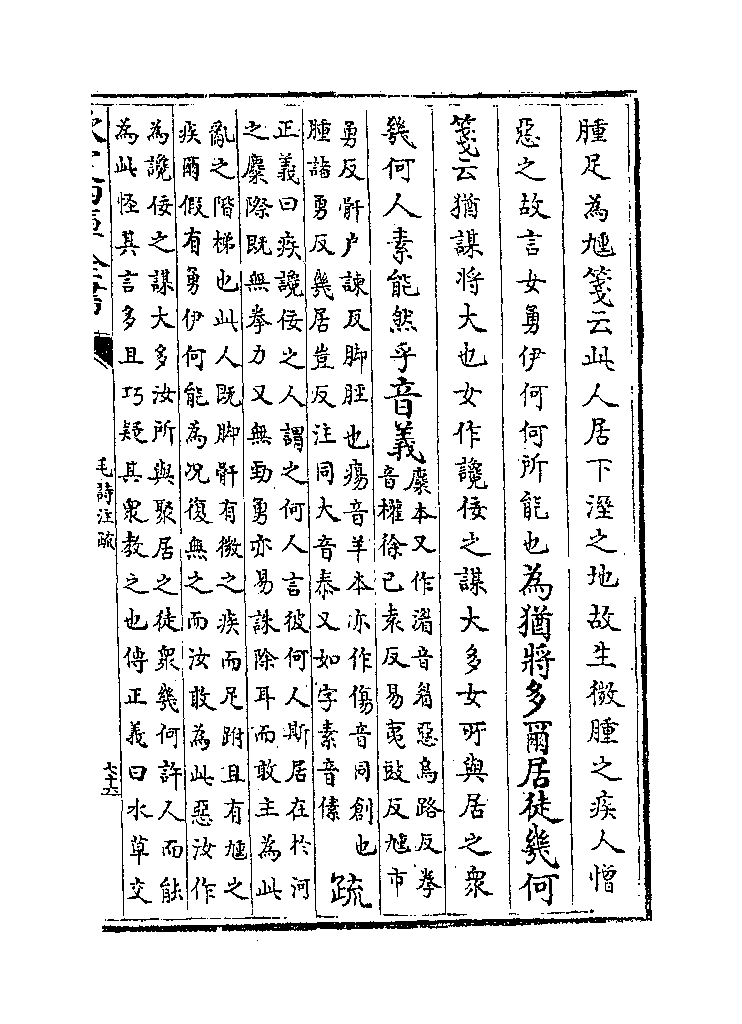 腫足為尰箋云此人居下溼之地故生微腫之疾人憎
惡之故言女勇伊何何所能也為猶將多爾居徒幾何
箋云猶謀将大也女作讒佞之謀大多女所與居之衆
幾何人素能然乎音義麋本又作湄音眉惡烏路反拳
音權徐己袁反易夷豉反尰市
勇反骭户諫反脚脛也瘍音羊本亦作傷音同創也
腫諸勇反幾居豈反注同大音泰又如字素音傃
疏
正義曰疾讒佞之人謂之何人言彼何人斯居在於河
之麋際既無拳力又無勁勇亦易誅除耳而敢主為此
亂之階梯也此人既脚骭有微之疾而足跗且有尰之
疾爾假有勇伊何能為况復無之而汝敢為此惡汝作
為讒佞之謀大多汝所與聚居之徒衆幾何許人而能
為此怪其言多且巧疑其衆教之也傳正義曰水草交
欽定四庫全書
毛詩注疏
七十六